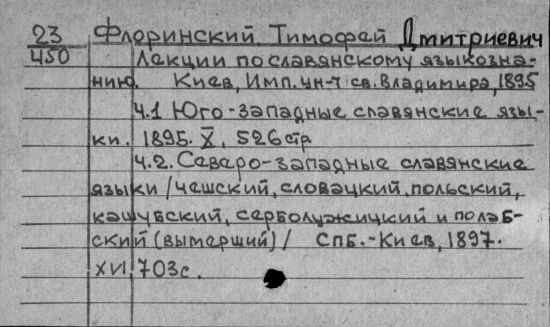 23 Флоринский Тимофей Дмитриевич
450 Лекции по славянскому языкозна-
нию. Киев, Имп. ун-т св. Владимира, 1895
Ч.1 Юго-западные славянские язы-
ки. 1895. X, 526 стр
Ч.2. Северо-западные славянские
языки /чешский, словацкий, польский,
кашубский, серболужицкий и полаб-
ский (вымерший)/ Спб.-Киев, 1897.
XVI, 703с.